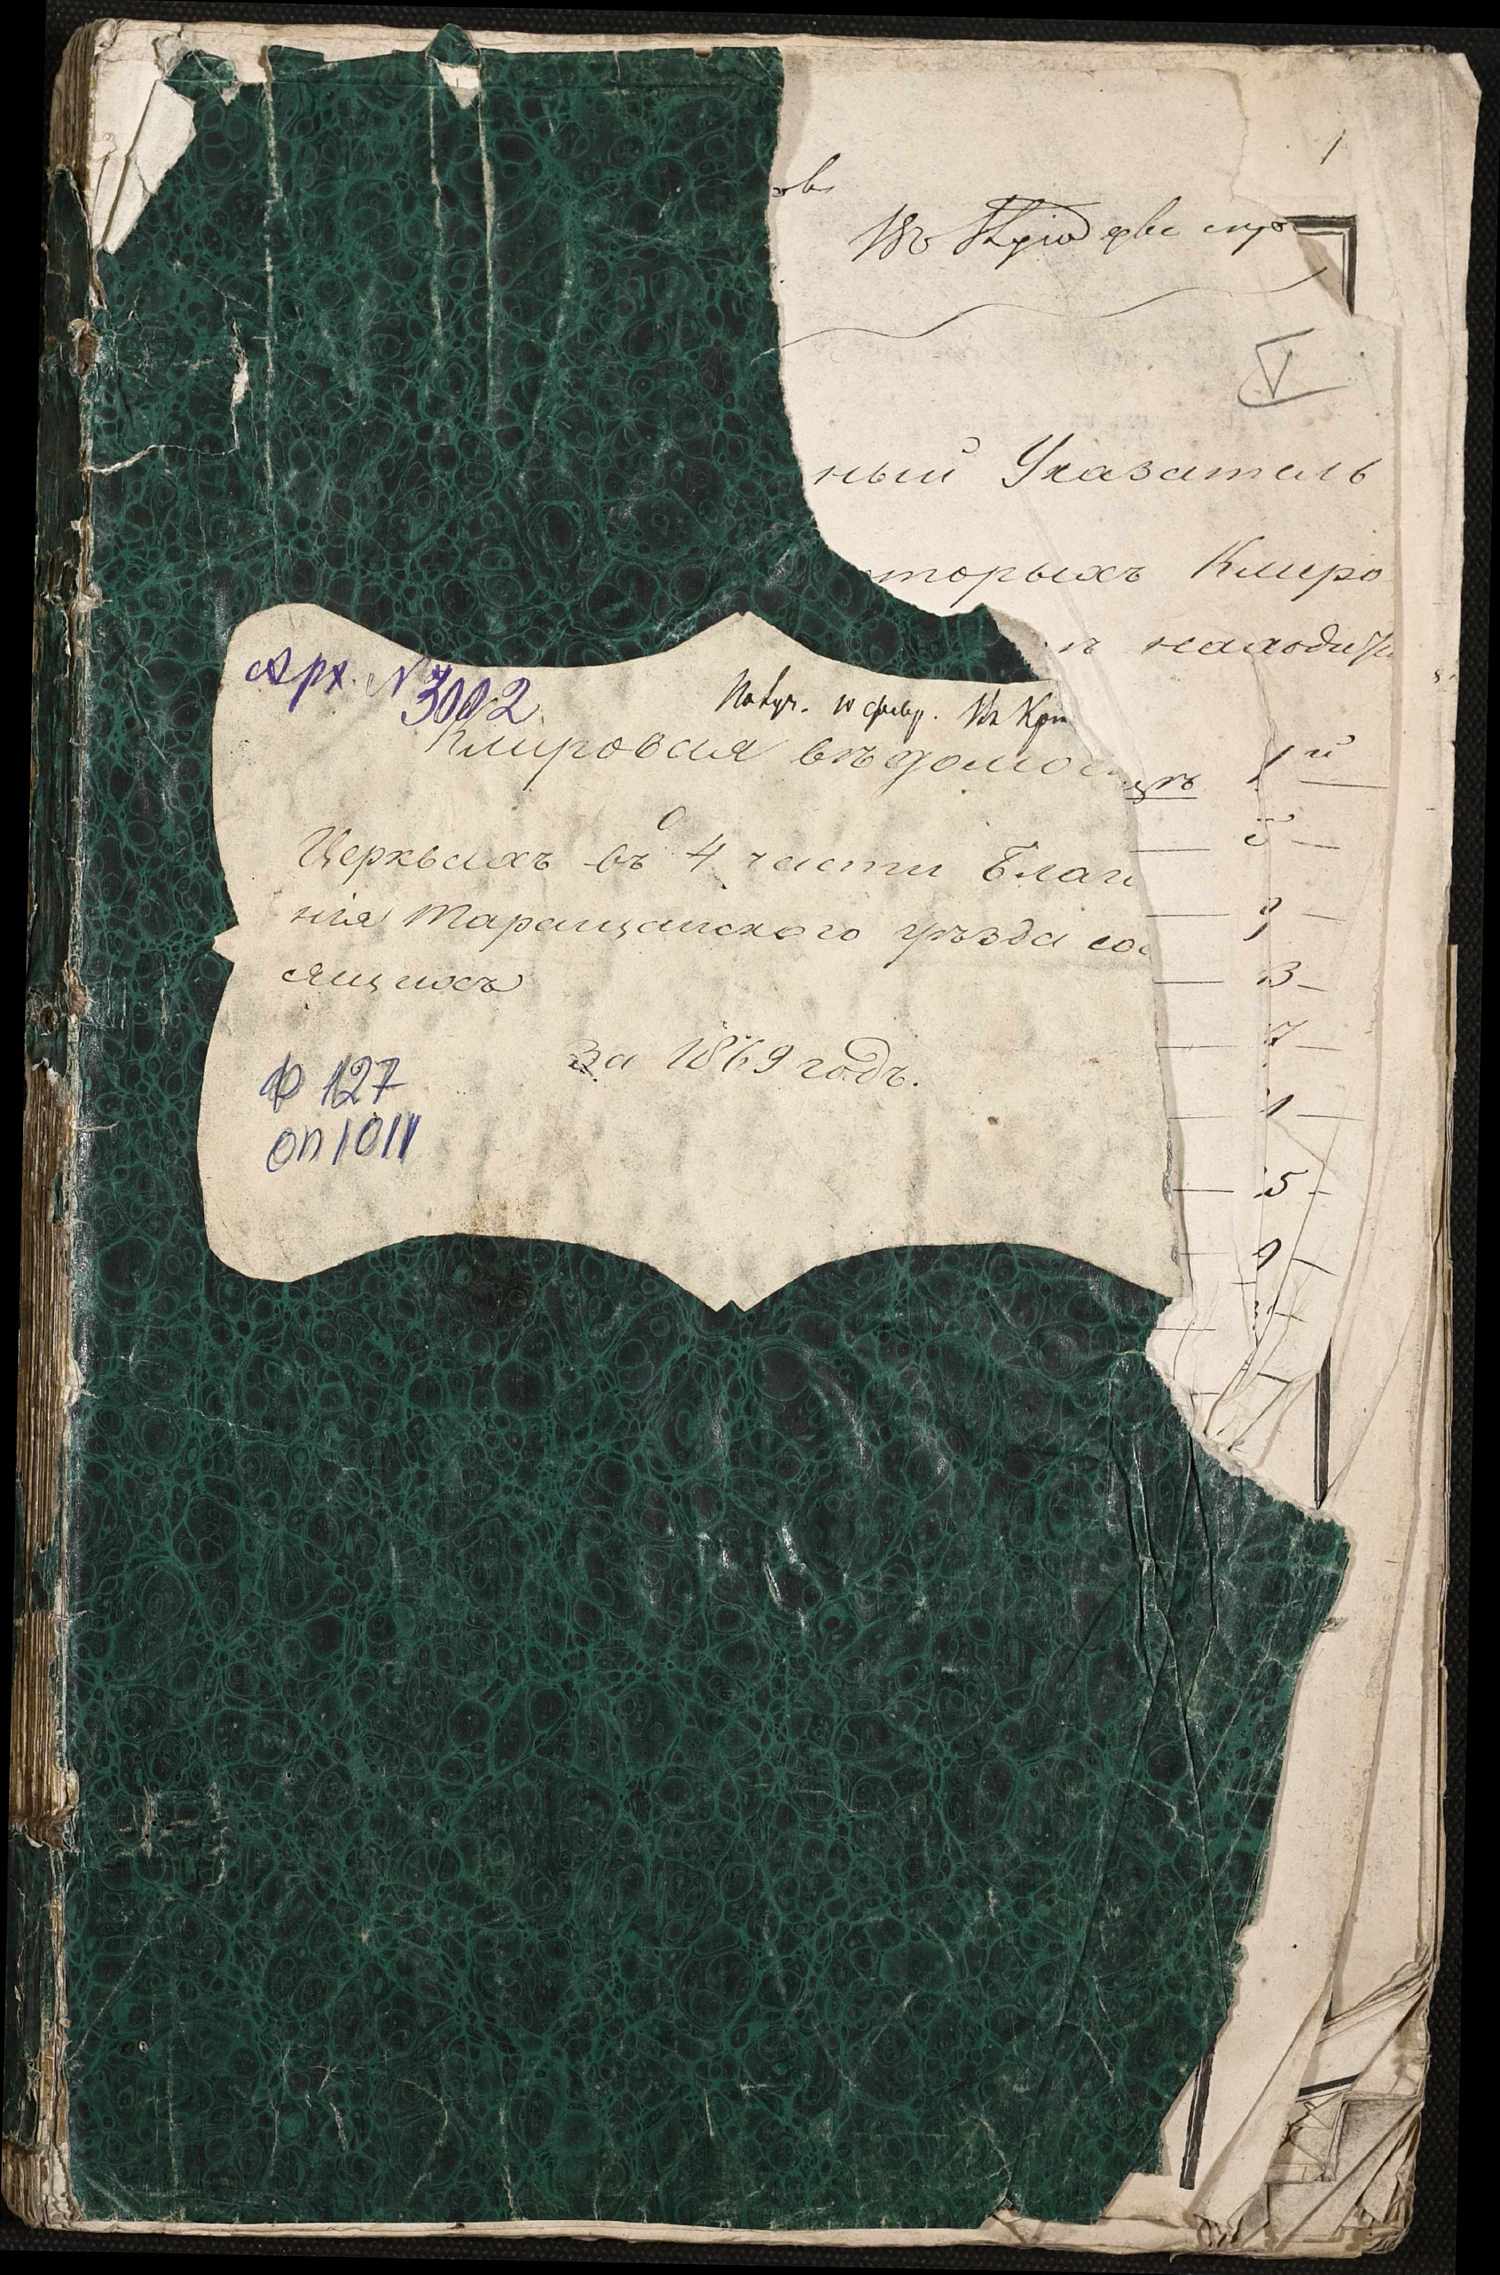 1
въ
V
ный Указатель
оторыхъ Клиро
находитс
Арх. № 3002
Получ. 10 февр. Въ Кри
Клировая вѣдомос
о
Церквахъ въ 4 части Благ
нія Таращанскаго уѣзда сос
ящихъ
за 1869 годъ.
Ф 127
оп 1011
1й
5
9
13
17
21
25
29